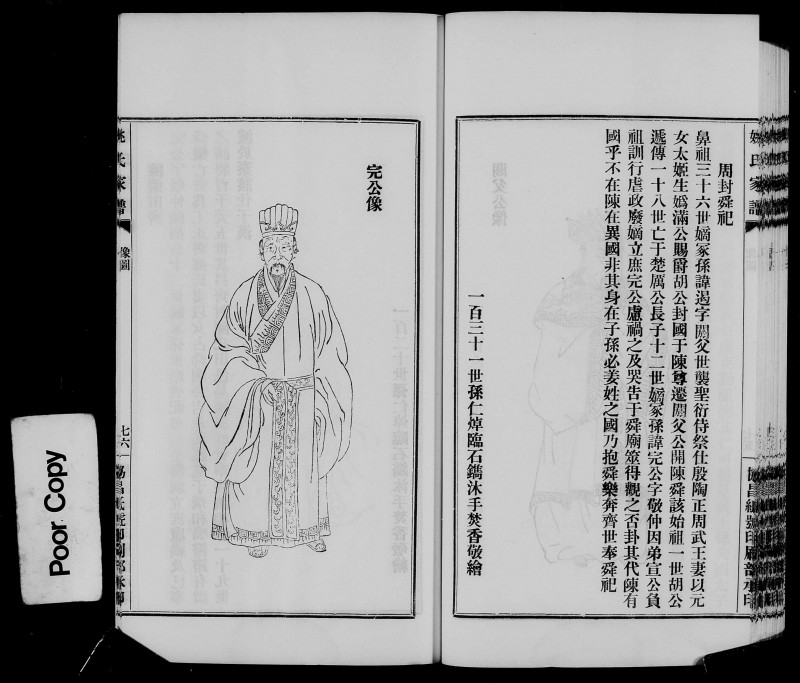 姚氏家譜
協昌紙號印刷部承印
周封舜祀
鼻祖三十六世嫡冢孫諱遏字閼父世襲聖衍侍祭仕殷陶正周武王妻以元
女太姬生媯滿公賜爵胡公封國于陳尊遷閼父公開陳舜該始祖一世胡公
遞傳一十八世亡于楚厲公長子十二世嫡冢孫諱完公字敬仲因弟宣公負
祖訓行虐政廢嫡立庶完公慮禍之及哭告于舜廟筮得觀之否卦其代陳有
國乎不在陳在異國非其身在子孫必姜姓之國乃抱舜樂奔齊世奉舜祀
一百三十一世孫仁焯臨石鐫沐手焚香敬繪
完公像
姚氏家譜
像圖
七六
協昌紙號印刷部承印
Poor Copy